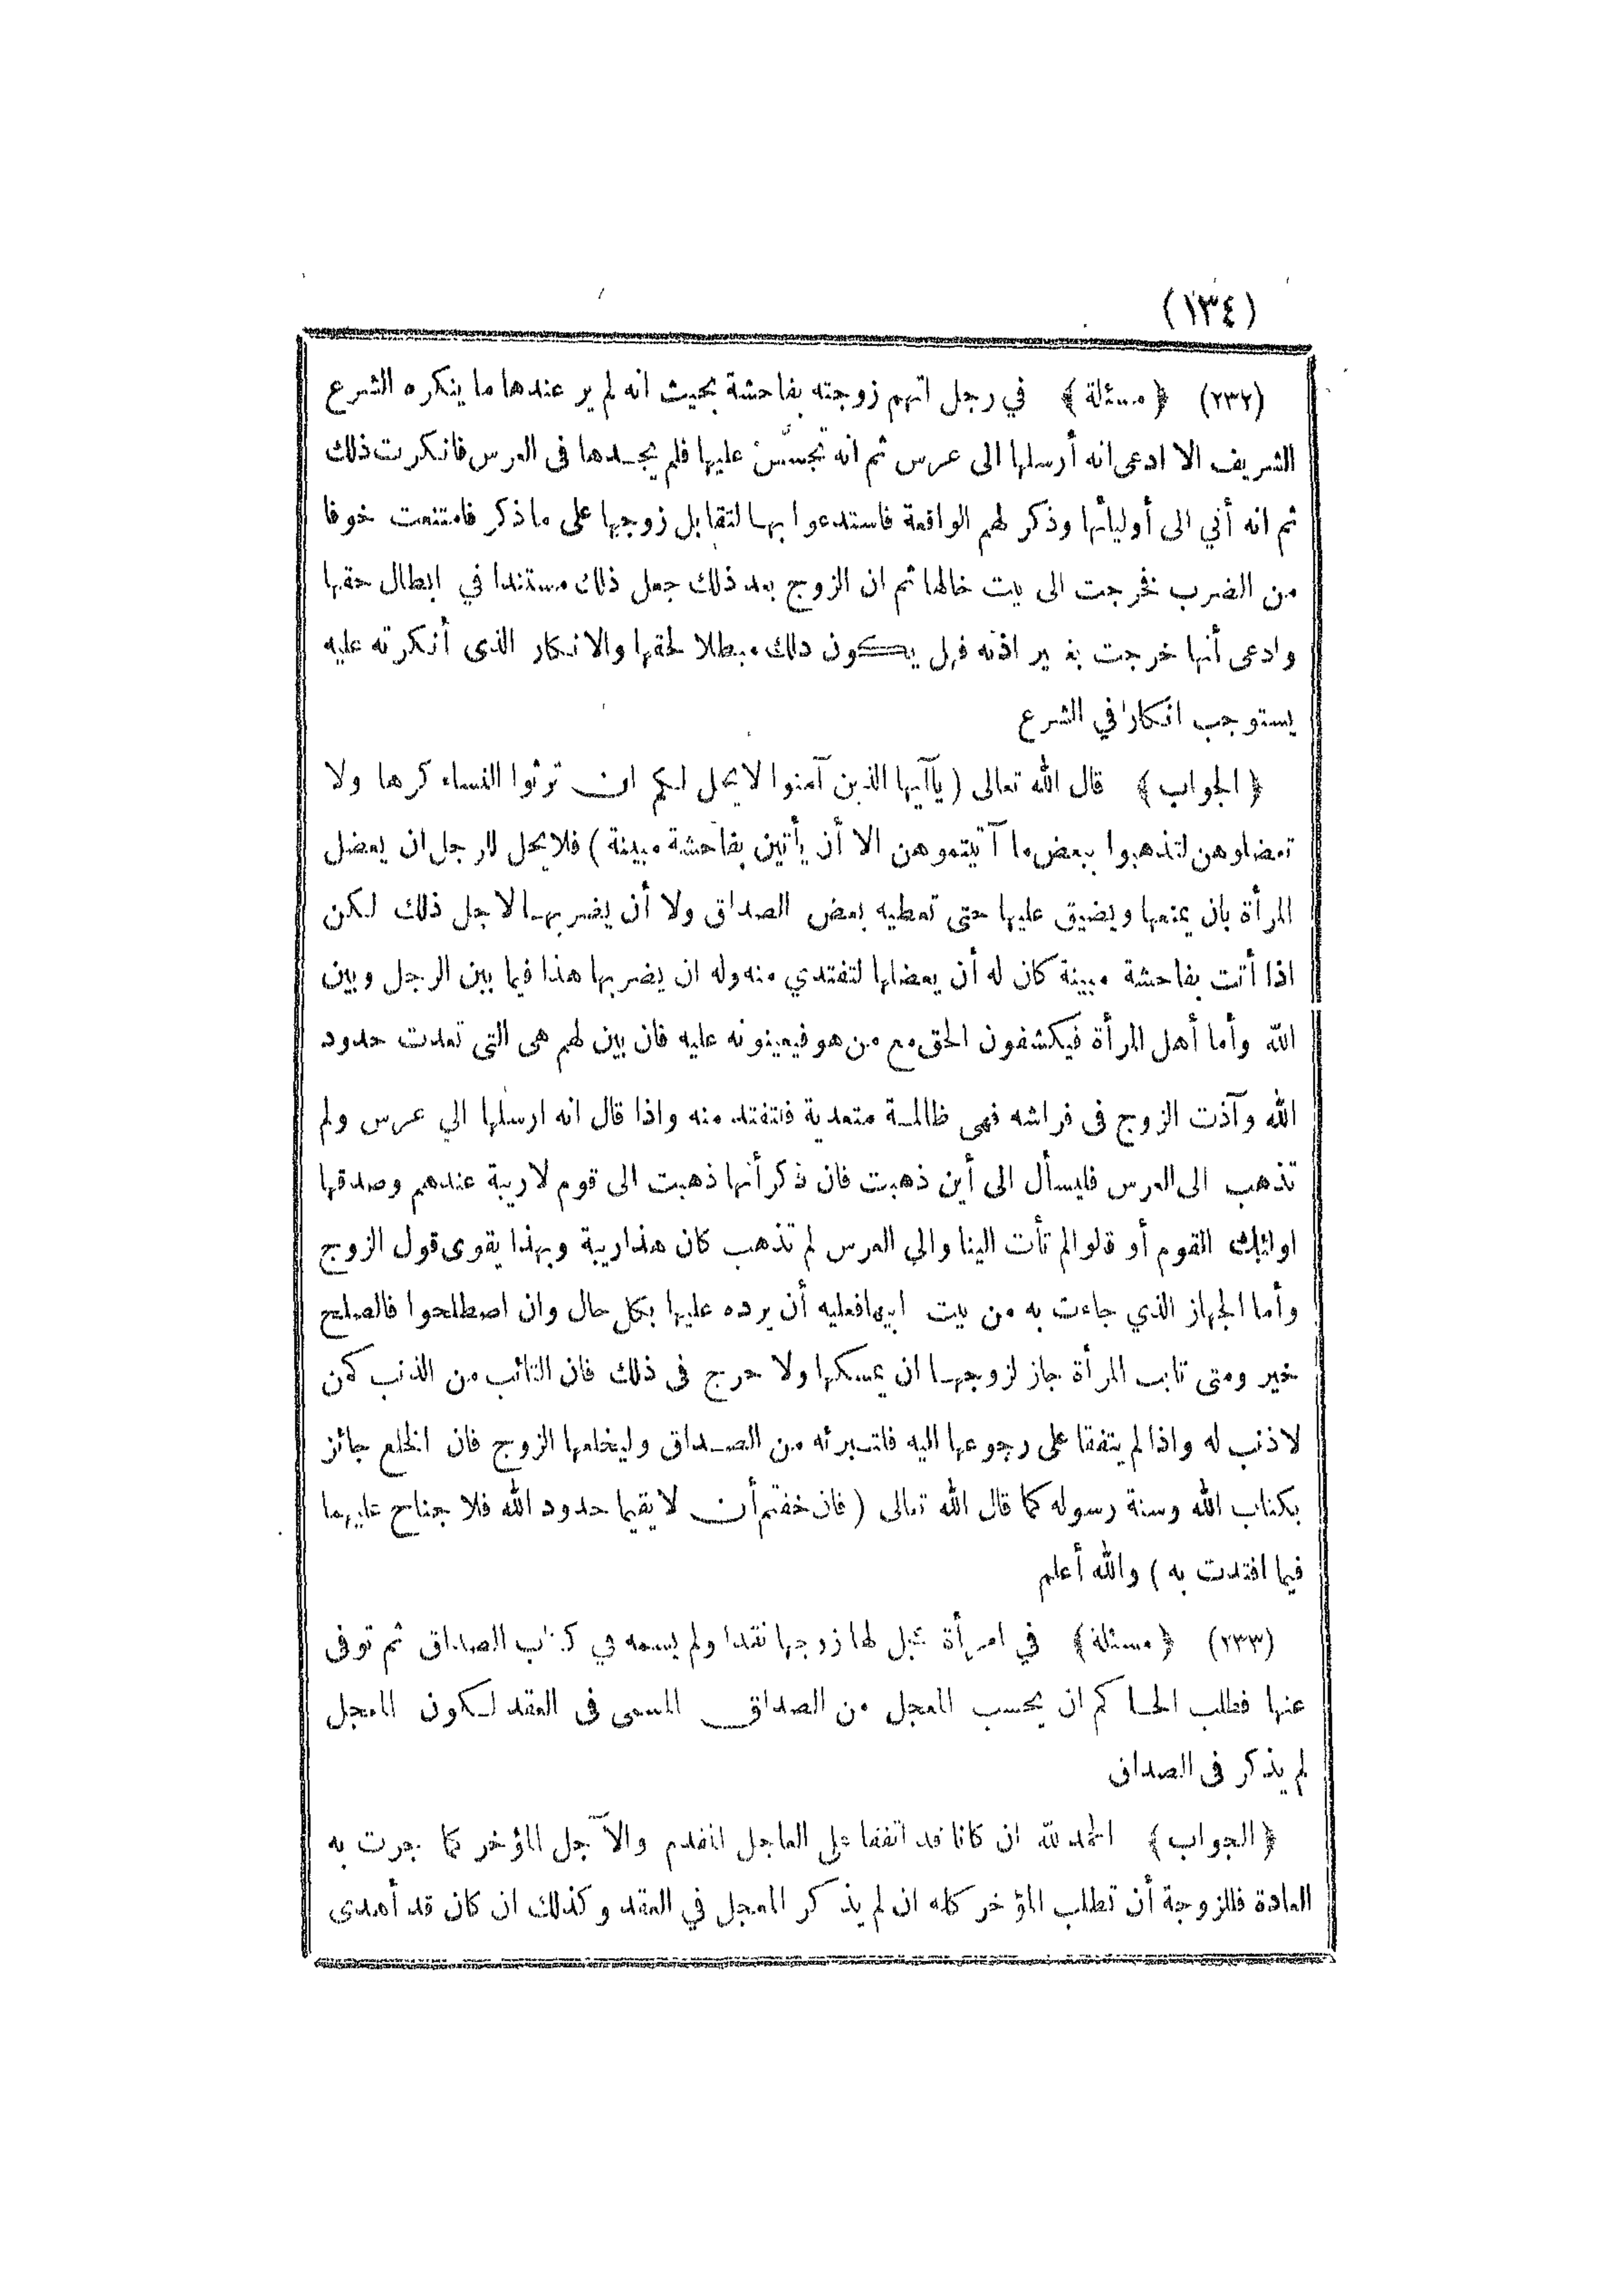 (١٣٤)
(٢٣٢) ﴿مسئلة﴾ في رجل اتهم زوجته بفاحشة بحيث انه لم ير عندها ما ينكره الشرع
الشريف الا ادعى انه أرسلها الى عرس ثم انه تجسّس عليها فلم يجدها فى العرس فانكرت ذلك
ثم انه أتي الى أوليائها وذكر لهم الواقعة فاستدعوا بها لتقابل زوجها على ما ذكر فامتنعت خوفا
من الضرب فخرجت الى بيت خالها ثم ان الزوج بعد ذلك جعل ذلك مستندا في ابطال حقها
وادعى أنها خرجت بغير اذنه فهل يكون ذلك مبطلا لحقها والانكار الذى أنكرته عليه
يستوجب انكارا في الشرع
﴿الجواب﴾ قال الله تعالى (ياآيها الذين آمنوا لا يحل لكم ان ترثوا النساء كرها ولا
تعضلوهن لتذهبوا ببعض ما آتيتموهن الا أن يأتين بفاحشة مبينة) فلا يحل للرجل ان يعضل
المرأة بان يمنعها ويضيق عليها حتى تعطيه بعض الصداق ولا أن يضربها لاجل ذلك لكن
اذا أتت بفاحشة مبينة كان له أن يعضلها لتفتدي منه وله ان يضربها هذا فيما بين الرجل وبين
الله وأما أهل المرأة فيكشفون الحق مع من هو فيعينونه عليه فان بين لهم هى التى تعدت حدود
الله وآذت الزوج فى فراشه فهى ظالمة متعدية فلتفتد منه واذا قال انه ارسلها الي عرس ولم
تذهب الى العرس فليسأل الى أين ذهبت فان ذكر أنها ذهبت الى قوم لا ريبة عندهم وصدقها
اولئك القوم أو قالوا لم تأت الينا والي العرس لم تذهب كان هذا ريبة وبهذا يقوى قول الزوج
وأما الجهاز الذي جاءت به من بيت ابيها فعليه أن يرده عليها بكل حال وان اصطلحوا فالصلح
خير ومتى تابت المرأة جاز لزوجها ان يمسكها ولا حرج فى ذلك فان التائب من الذنب كمن
لا ذنب له واذا لم يتفقا على رجوعها اليه فلتبرئه من الصداق وليخلعها الزوج فان الخلع جائز
بكتاب الله وسنة رسوله كما قال الله تعالى (فان خفتم أن لا يقيما حدود الله فلا جناح عليهما
فيما افتدت به) والله أعلم
(٢٣٣) ﴿مسئلة﴾ في امرأة عجل لها زوجها نقدا ولم يسمه في كتاب الصداق ثم توفى
عنها فطلب الحاكم ان يحسب المعجل من الصداق المسمى فى العقد لكون المعجل
لم يذكر فى الصداق
﴿الجواب﴾ الحمد لله ان كانا قد اتفقا على العاجل المقدم والآجل المؤخر كما جرت به
العادة فللزوجة أن تطلب المؤخر كله ان لم يذكر المعجل في العقد وكذلك ان كان قد أهدى